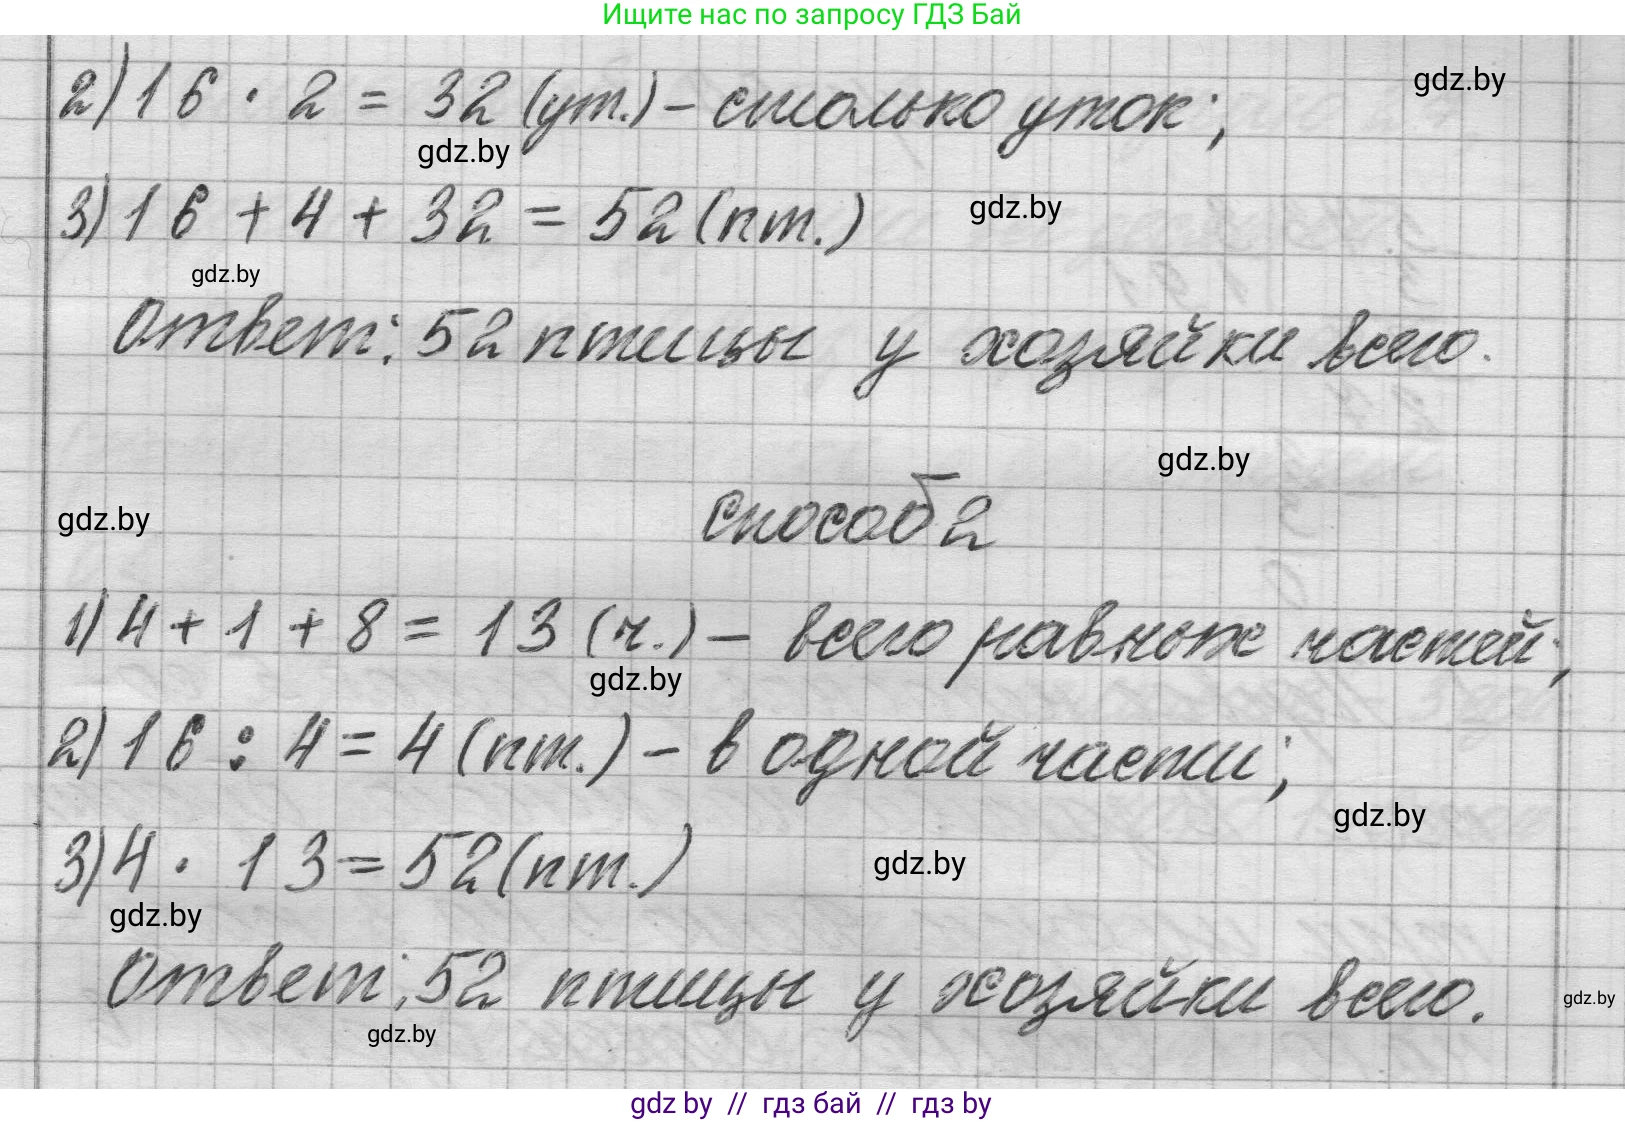 Ищите нас по запросу ГДЗ Бай
2) 16 · 2 = 32 (ут.) – столько уток;
gdz.by
gdz.by
3) 16 + 4 + 32 = 52 (пт.)
gdz.by
gdz.by
Ответ: 52 птицы у хозяйки всего.
gdz.by
gdz.by
способ 2
1) 4 + 1 + 8 = 13 (ч.) – всего равных частей;
gdz.by
2) 16 : 4 = 4 (пт.) – в одной части;
gdz.by
3) 4 · 13 = 52 (пт.)
gdz.by
gdz.by
Ответ: 52 птицы у хозяйки всего.
gdz.by
gdz.by
gdz by // гдз бай // гдз by